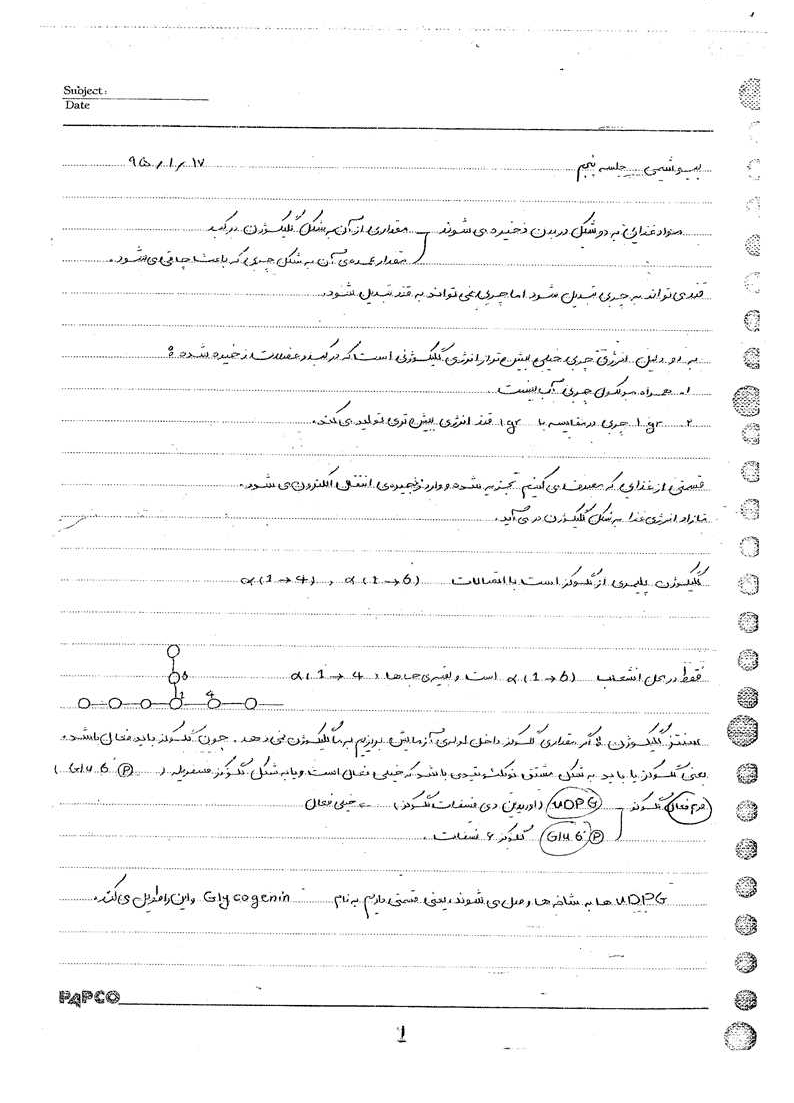 Subject:
Date
بیوشیمی _ جلسه پنجم ۹۵/۱/۱۷
مواد غذایی به دو شکل در بدن ذخیره می شوند مقداری از آن به شکل گلیکوژن در کبد
مقدار عمده ی آن به شکل چربی که باعث چاقی می شود.
قند می تواند به چربی تبدیل شود اما چربی نمی تواند به قند تبدیل شود.
به دو دلیل انرژی چربی خیلی بیش تر از انرژی گلیکوژنی است که در کبد و عضلات ذخیره شده:
۱. همراه مولکول چربی آب نیست
۲. 1 gr چربی در مقایسه با 1 gr قند انرژی بیش تری تولید می کند.
قسمتی از غذایی که مصرف می کنیم تجزیه شده و وارد زنجیره ی انتقال الکترون می شود.
مازاد انرژی غذا به شکل گلیکوژن در می آید.
گلیکوژن پلیمری از گلوکز است با اتصالات α(1→6) , α(1→4)
فقط در محل انشعاب α(1→6) است و بقیه ی جاها، α(1→4
6
1 4
سنتز گلیکوژن: اگر مقداری گلوکز داخل لوله ی آزمایش بریزیم به ما گلیکوژن نمی دهد. چون گلوکز باید فعال باشد.
یعنی گلوکز یا باید به شکل مشتق نوکلئوتیدی باشد که خیلی فعال است و یا به شکل گلوکز فسفریله (Glu 6 P)
فرم فعال گلوکز UDPG (اوریدین دی فسفات گلوکز) → خیلی فعال
Glu 6 P گلوکز ۶ فسفات.
UDPG ها به شاخه ها وصل می شوند، یعنی قسمتی داریم به نام Glycogenin و این را طویل می کند.
PAPCO
1